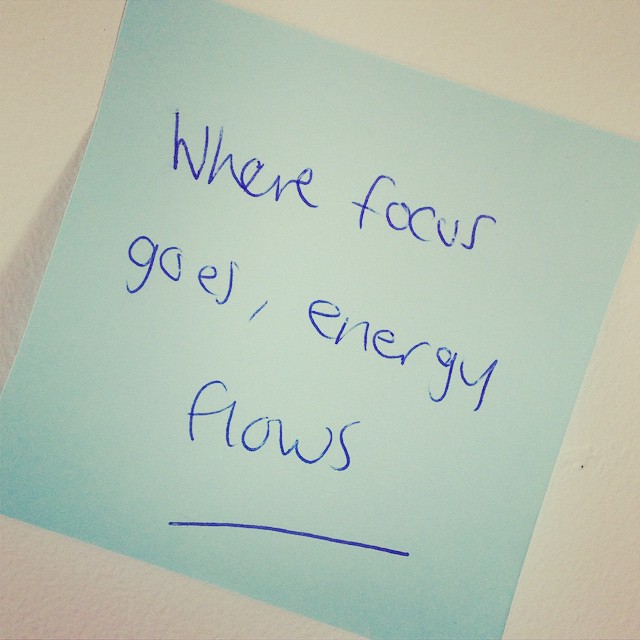 Where focus
goes, energy
flows